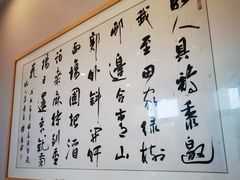 故人具鷄黍邀
我至田家綠樹
邨邊合青山
郭外斜開軒
面場圃把酒
話桑麻待到重
陽日還來就菊
花